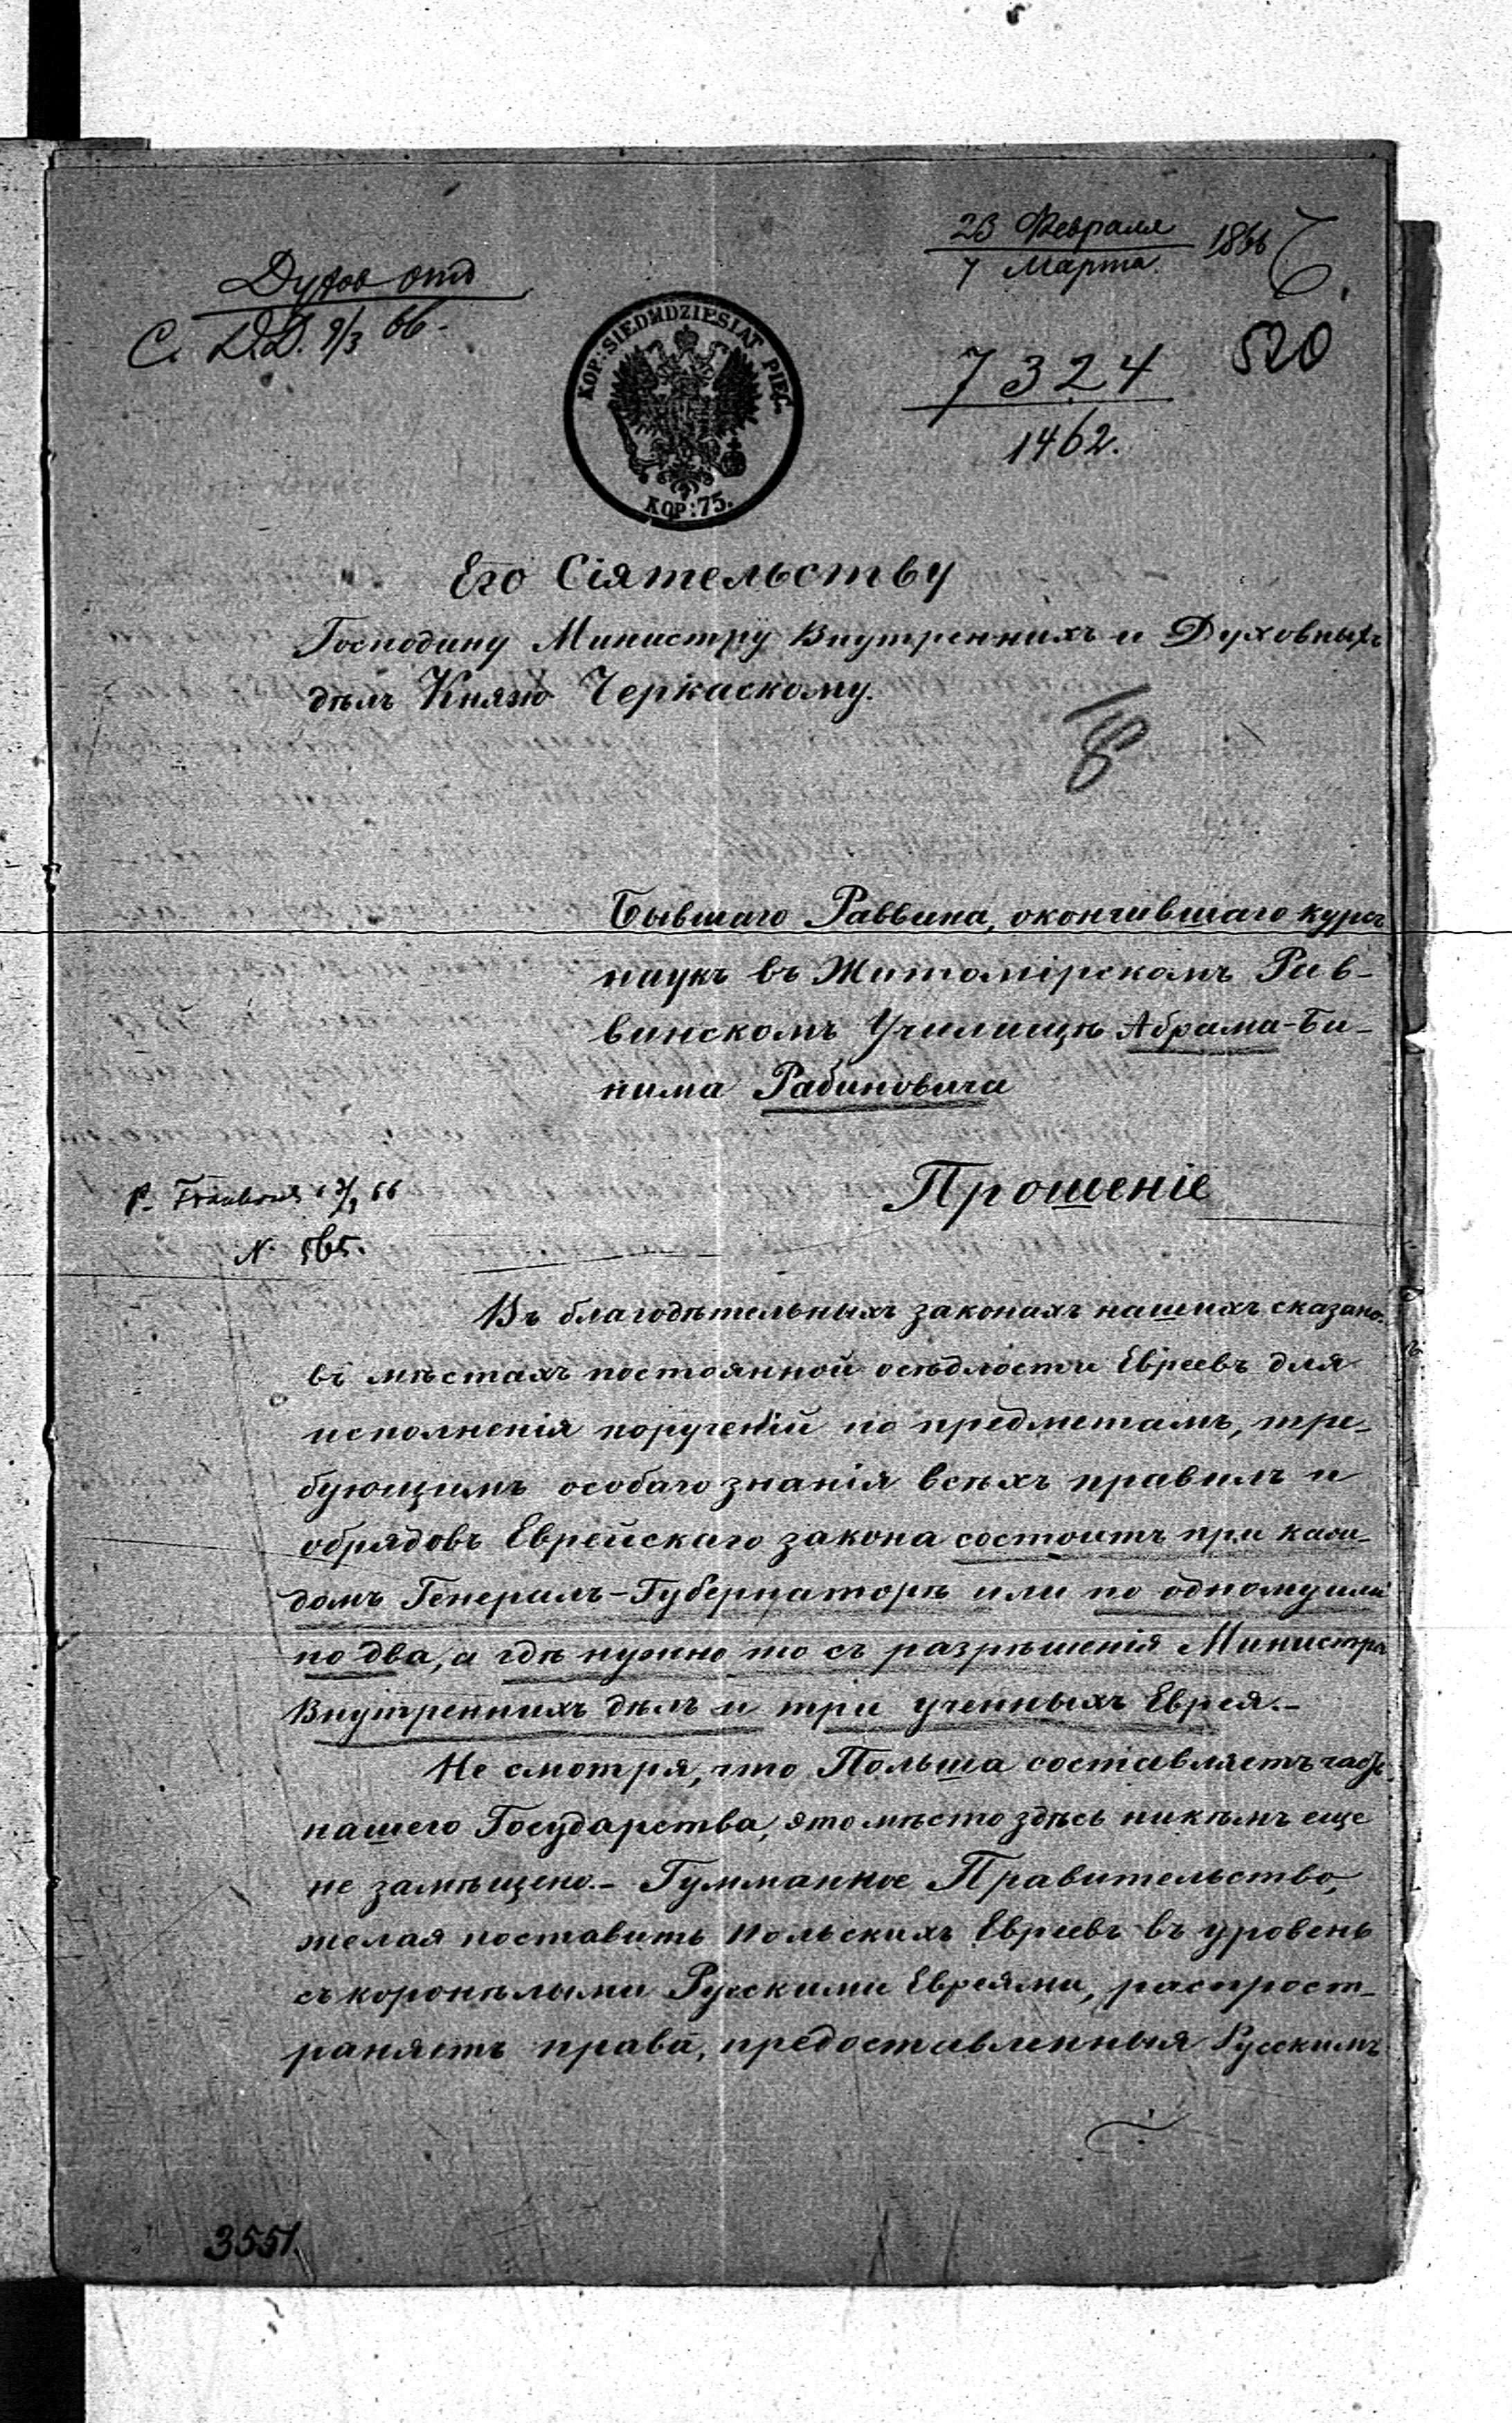 23 Февраля
7 Марта 1866
Духов отд
С. Д.Д. 9/3 66.
520
7324
1462.
KOP: SIEDMDZIESIAT PIĘĆ.
KOP: 75.
Его Сіятельству
Господину Министру Внутреннихъ и Духовныхъ
дѣлъ Князю Черкаскому.
Бывшаго Раввина, окончившаго курсъ
наукъ въ Житомірскомъ Рав-
винскомъ Училищѣ Абрама-Би-
нима Рабиновича
Прошеніе
N. 565.
Въ благодѣтельныхъ законахъ нашихъ сказано:
въ мѣстахъ постоянной осѣдлости Евреевъ для
исполненія порученій по предметамъ, тре-
бующимъ особаго знанія всѣхъ правилъ и
обрядовъ Еврейскаго закона состоитъ при каж-
домъ Генералъ-Губернаторѣ или по одному или
по два, а гдѣ нужно то съ разрѣшенія Министра
Внутреннихъ дѣлъ и три ученныхъ Еврея.-
Не смотря, что Польша составляетъ часть
нашего Государства, это мѣсто здѣсь никѣмъ еще
не замѣщено.- Гумманное Правительство,
желая поставить Польскихъ Евреевъ въ уровень
съ коронѣлыми Русскими Евреями, распрост-
раняетъ права, предоставленныя Русскимъ
3551.